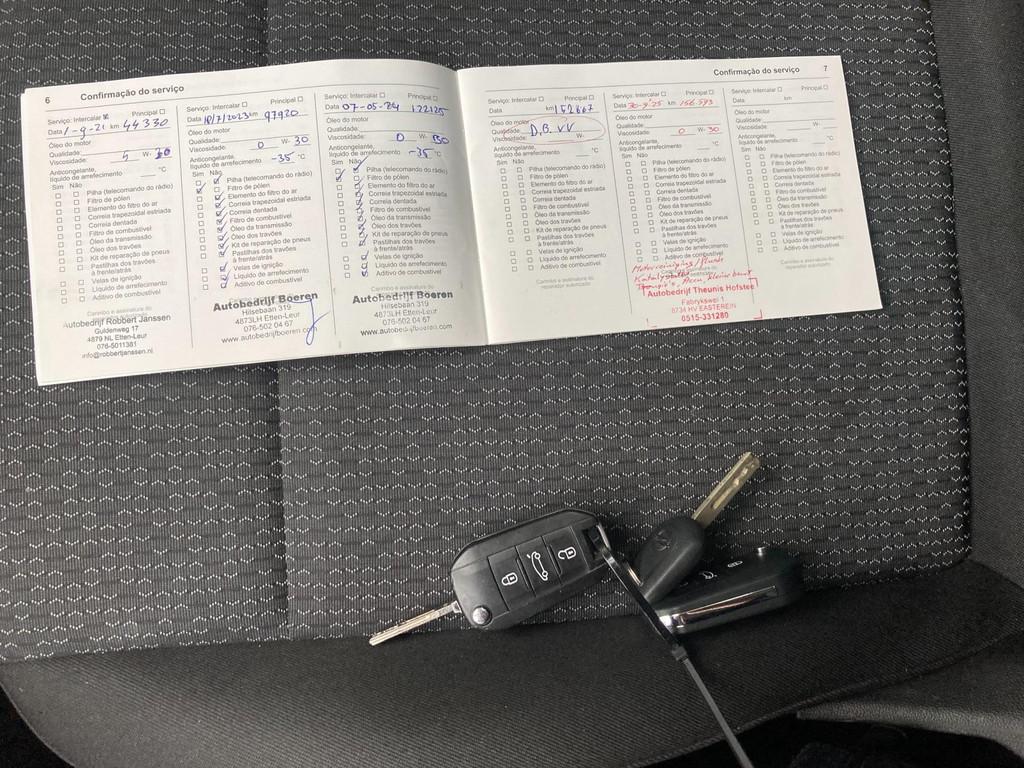 6 Confirmação do serviço
Serviço: Intercalar ☒ Principal ☐
Data 1-9-21 km 44330
Óleo do motor
Qualidade:
Viscosidade: 5 W- 30
Anticongelante,
líquido de arrefecimento °C
Sim Não
Pilha (telecomando do rádio)
Filtro de pólen
Elemento do filtro do ar
Correia trapezoidal estriada
Correia dentada
Filtro de combustível
Óleo da transmissão
Óleo dos travões
Kit de reparação de pneus
Pastilhas dos travões
à frente/atrás
Velas de ignição
Líquido de arrefecimento
Aditivo de combustível
Carimbo e assinatura do
Autobedrijf Robbert Janssen
Guldenweg 17
4879 NL Etten-Leur
076-5011381
info@robbertjanssen.nl
Serviço: Intercalar ☐ Principal ☐
Data 10/7/2023 km 97920
Óleo do motor
Qualidade:
Viscosidade: 0 W- 30
Anticongelante,
líquido de arrefecimento -35 °C
Sim Não
Pilha (telecomando do rádio)
Filtro de pólen
Elemento do filtro do ar
Correia trapezoidal estriada
Correia dentada
Filtro de combustível
Óleo da transmissão
Óleo dos travões
Kit de reparação de pneus
Pastilhas dos travões
à frente/atrás
Velas de ignição
Líquido de arrefecimento
Aditivo de combustível
Autobedrijf Boeren
Hilsebaan 319
4873LH Etten-Leur
076-502 04 67
www.autobedrijfboeren.com
Serviço: Intercalar ☐ Principal ☐
Data 07-05-24 122125
Óleo do motor
Qualidade:
Viscosidade: 0 W- 30
Anticongelante,
líquido de arrefecimento -35 °C
Sim Não
Pilha (telecomando do rádio)
Filtro de pólen
Elemento do filtro do ar
Correia trapezoidal estriada
Correia dentada
Filtro de combustível
Óleo da transmissão
Óleo dos travões
Kit de reparação de pneus
Pastilhas dos travões
à frente/atrás
Velas de ignição
Líquido de arrefecimento
Aditivo de combustível
Autobedrijf Boeren
Hilsebaan 319
4873LH Etten-Leur
076-502 04 67
www.autobedrijfboeren.com
Confirmação do serviço 7
Serviço: Intercalar ☐ Principal ☐
Data km 152667
Óleo do motor
Qualidade: D.B. VV
Viscosidade: W-
Anticongelante,
líquido de arrefecimento °C
Sim Não
Pilha (telecomando do rádio)
Filtro de pólen
Elemento do filtro do ar
Correia trapezoidal estriada
Correia dentada
Filtro de combustível
Óleo da transmissão
Óleo dos travões
Kit de reparação de pneus
Pastilhas dos travões
à frente/atrás
Velas de ignição
Líquido de arrefecimento
Aditivo de combustível
Carimbo e assinatura do
reparador autorizado
Serviço: Intercalar ☐ Principal ☐
Data 30-9-'25 km 156.593
Óleo do motor
Qualidade:
Viscosidade: 0 W- 30
Anticongelante,
líquido de arrefecimento °C
Sim Não
Pilha (telecomando do rádio)
Filtro de pólen
Elemento do filtro do ar
Correia trapezoidal estriada
Correia dentada
Filtro de combustível
Óleo da transmissão
Óleo dos travões
Kit de reparação de pneus
Pastilhas dos travões
à frente/atrás
Velas de ignição
Líquido de arrefecimento
Aditivo de combustível
Motorreiniging
Autobedrijf Theunis Hofstee
Fabrykswei 1
8734 HV EASTEREIN
0515-331280
Serviço: Intercalar ☐ Principal ☐
Data km
Óleo do motor
Qualidade:
Viscosidade: W-
Anticongelante,
líquido de arrefecimento °C
Sim Não
Pilha (telecomando do rádio)
Filtro de pólen
Elemento do filtro do ar
Correia trapezoidal estriada
Correia dentada
Filtro de combustível
Óleo da transmissão
Óleo dos travões
Kit de reparação de pneus
Pastilhas dos travões
à frente/atrás
Velas de ignição
Líquido de arrefecimento
Aditivo de combustível
Carimbo e assinatura do
reparador autorizado